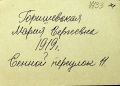 1433
Горишевская
Мария Сергеевна
1919г.
Сенной переулок 11